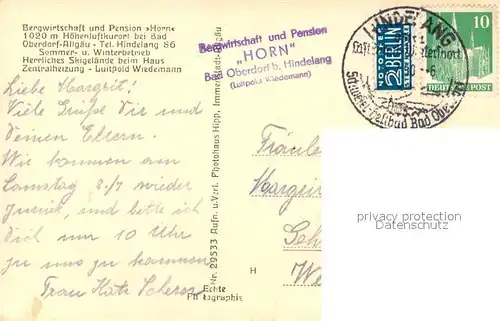 Bergwirtschaft und Pension »Horn«
1020 m Höhenluftkurort bei Bad
Oberdorf-Allgäu - Tel. Hindelang 86
Sommer- u. Winterbetrieb
Herrliches Skigelände beim Haus
Zentralheizung - Luitpold Wiedemann
Bergwirtschaft und Pension
„HORN"
Bad Oberdorf b. Hindelang
(Luitpold Wiedemann)
HINDELANG
Bad
NOTOPFER
2 BERLIN
STEUERMARKE
10
DEUTSCHE POST
Liebe Margrit!
Viele Grüße Dir und
Deinen Eltern.
Wir kommen am
Samstag 8./7 wieder
zurück, und bitte ich
Dich um 10 Uhr
zu uns zu kommen
Frau Käte Scherer
Nr. 29533 Aufn. u. Verl. Photohaus Hipp, Immenstadt-Allgäu
Fräulein
H
Echte
Photographie
privacy protection
Datenschutz